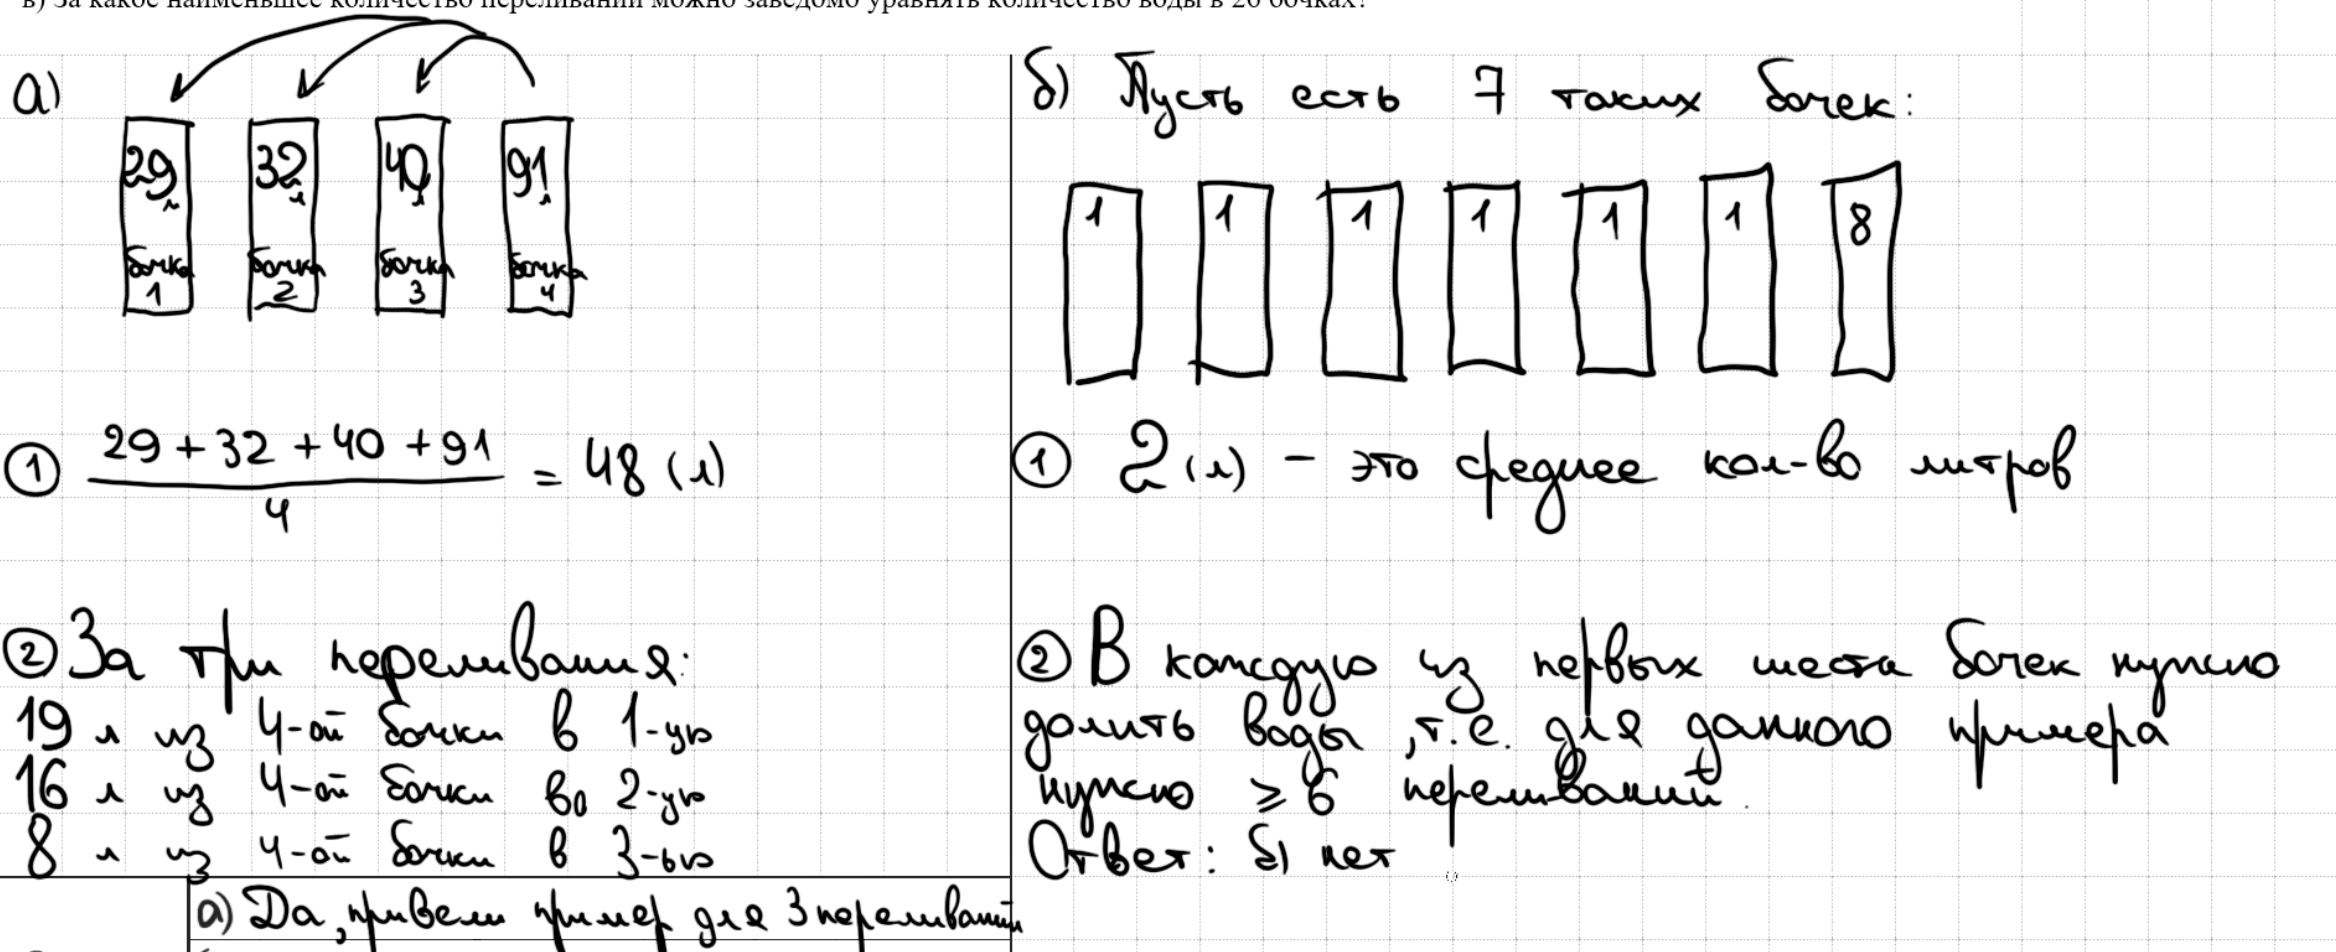 в) За какое наименьшее количество переливаний можно заведомо уравнять количество воды в 26 бочках?
а)
29 л
бочка
1
32 л
бочка
2
40 л
бочка
3
91 л
бочка
4
① (29 + 32 + 40 + 91) / 4 = 48 (л)
② За три переливания:
19 л из 4-ой бочки в 1-ую
16 л из 4-ой бочки во 2-ую
8 л из 4-ой бочки в 3-ью
а) Да, привели пример для 3 переливаний
б) Пусть есть 7 таких бочек:
1 1 1 1 1 1 8
① 2 (л) – это среднее кол-во литров
② В каждую из первых шести бочек нужно
долить воды, т.е. для данного примера
нужно ⩾ 6 переливаний.
Ответ: б) нет